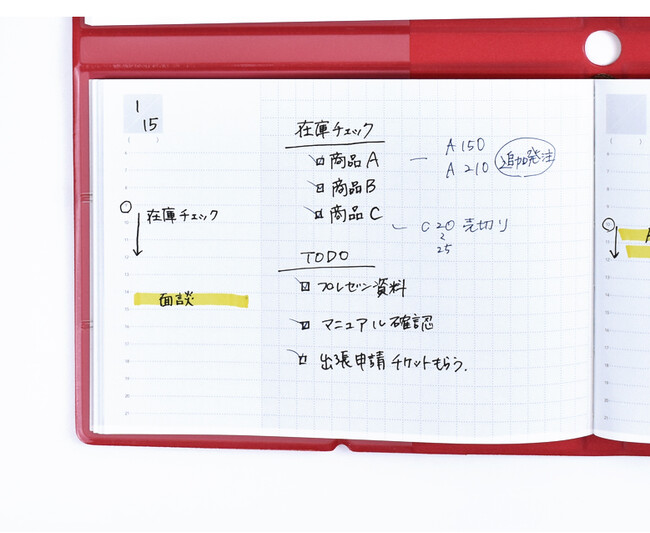 1
15
在庫チェック
面談
在庫チェック
商品A
商品B
商品C
A 150
A 210
追加発注
C 20 売切り
25
TODO
プレゼン資料
マニュアル確認
出張申請チケットもらう.